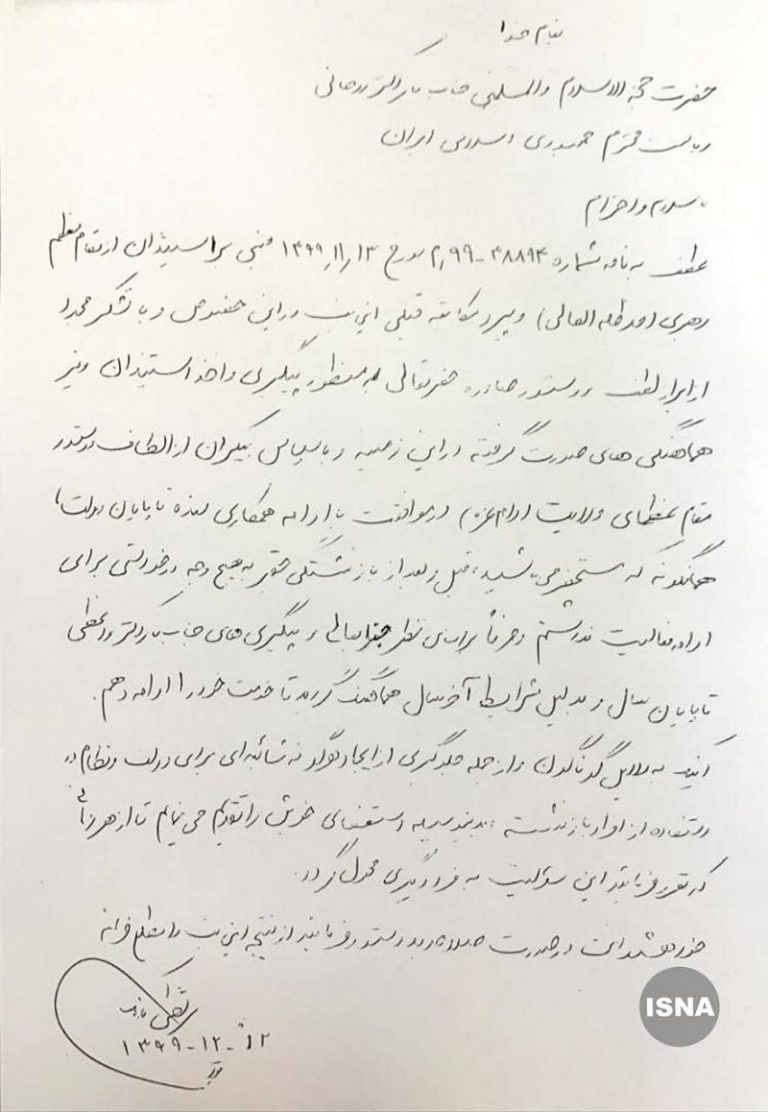 بنام خدا
حضرت حجه الاسلام والمسلمین جناب آقای دکتر روحانی
ریاست محترم جمهوری اسلامی ایران
با سلام و احترام
عطف به نامه شماره ۳۸۸۹۴-۹۹م مورخ ۱۳۹۹،۱۱،۱۳ مبنی بر استیذان از مقام معظم
رهبری (مد ظله العالی) و پیرو مکاتبه قبلی اینجانب در این خصوص و با تشکر مجدد
از ابراز لطف و دستور صادره حضرتعالی به منظور پیگیری و اخذ استیذان و نیز
هماهنگی های صورت گرفته در این زمینه و با سپاس بیکران از الطاف
مقام عظمای ولایت (دام عزه) در موافقت با ادامه همکاری بنده تا پایان دولت،
همانگونه که مستحضر می باشید، قبل و بعد از بازنشستگی حقیر به هیچ وجه درخواستی برای
ادامه فعالیت نداشتم و صرفاً بر اساس نظر جنابعالی و پیگیری های جناب آقای دکتر واعظی
تا پایان سال و بدلیل شرایط آخر سال هماهنگ گردید تا خدمت خود را ادامه دهم.
اینک به دلایل گوناگون و از جمله جلوگیری از ایجاد هرگونه شائبه ای برای دولت و نظام در
استفاده از افراد بازنشسته، بدینوسیله استعفای خویش را تقدیم می نمایم تا از هر زمانی
که مقرر فرمائید این مسئولیت به فرد دیگری محول گردد.
خواهشمند است در صورت صلاحدید دستور فرمائید از نتیجه اینجانب را مطلع فرمایند
۱۳۹۹-۱۲-۱۲
ISNA